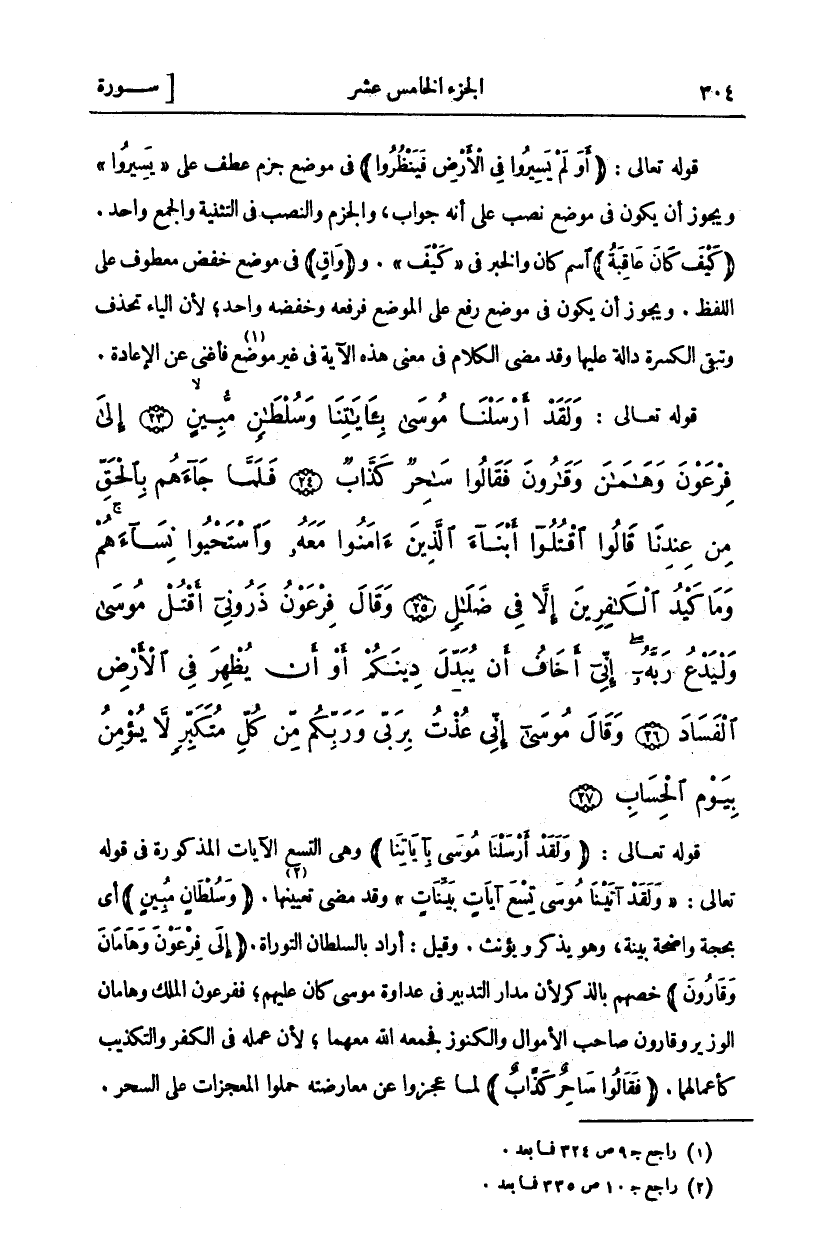 ٣٠٤ الجزء الخامس عشر [ سورة
قوله تعالى : ﴿ أَوَ لَمْ يَسِيرُوا فِي الْأَرْضِ فَيَنْظُرُوا ﴾ فى موضع جزم عطف على « يَسِيرُوا »
ويجوز أن يكون فى موضع نصب على أنه جواب، والجزم والنصب فى التثنية والجمع واحد .
﴿ كَيْفَ كَانَ عَاقِبَةُ ﴾ اسم كان والخبر فى « كَيْفَ » . و ﴿ وَاقٍ ﴾ فى موضع خفض معطوف على
اللفظ . ويجوز أن يكون فى موضع رفع على الموضع فرفعه وخفضه واحد؛ لأن الياء تحذف
وتبقى الكسرة دالة عليها وقد مضى الكلام فى معنى هذه الآية فى غير موضع (١) فأغنى عن الإعادة .
قوله تعالى : وَلَقَدْ أَرْسَلْنَا مُوسَىٰ بِـَٔايَـٰتِنَا وَسُلْطَـٰنٍ مُّبِينٍ ﴿٢٣﴾ إِلَىٰ
فِرْعَوْنَ وَهَـٰمَـٰنَ وَقَـٰرُونَ فَقَالُوا سَـٰحِرٌ كَذَّابٌ ﴿٢٤﴾ فَلَمَّا جَآءَهُم بِٱلْحَقِّ
مِن عِندِنَا قَالُوا ٱقْتُلُوٓا أَبْنَآءَ ٱلَّذِينَ ءَامَنُوا مَعَهُۥ وَٱسْتَحْيُوا نِسَآءَهُمْ ۚ
وَمَا كَيْدُ ٱلْكَـٰفِرِينَ إِلَّا فِى ضَلَـٰلٍ ﴿٢٥﴾ وَقَالَ فِرْعَوْنُ ذَرُونِىٓ أَقْتُلْ مُوسَىٰ
وَلْيَدْعُ رَبَّهُۥٓ ۖ إِنِّىٓ أَخَافُ أَن يُبَدِّلَ دِينَكُمْ أَوْ أَن يُظْهِرَ فِى ٱلْأَرْضِ
ٱلْفَسَادَ ﴿٢٦﴾ وَقَالَ مُوسَىٰٓ إِنِّى عُذْتُ بِرَبِّى وَرَبِّكُم مِّن كُلِّ مُتَكَبِّرٍ لَّا يُؤْمِنُ
بِيَوْمِ ٱلْحِسَابِ ﴿٢٧﴾
قوله تعالى : ﴿ وَلَقَدْ أَرْسَلْنَا مُوسَى بِآيَاتِنَا ﴾ وهى التسع الآيات المذكورة فى قوله
تعالى : « وَلَقَدْ آتَيْنَا مُوسَى تِسْعَ آيَاتٍ بَيِّنَاتٍ » وقد مضى تعيينها (٢) . ﴿ وَسُلْطَانٍ مُبِينٍ ﴾ أى
بحجة واضحة بينة، وهو يذكر ويؤنث . وقيل : أراد بالسلطان التوراة . ﴿ إِلَى فِرْعَوْنَ وَهَامَانَ
وَقَارُونَ ﴾ خصهم بالذكر لأن مدار التدبير فى عداوة موسى كان عليهم؛ ففرعون الملك وهامان
الوزير وقارون صاحب الأموال والكنوز فجمعه الله معهما ؛ لأن عمله فى الكفر والتكذيب
كأعمالهما . ﴿ فَقَالُوا سَاحِرٌ كَذَّابٌ ﴾ لما عجزوا عن معارضته حملوا المعجزات على السحر .
(١) راجع جـ ٩ ص ٣٢٤ فما بعد .
(٢) راجع جـ ١٠ ص ٣٣٥ فما بعد .